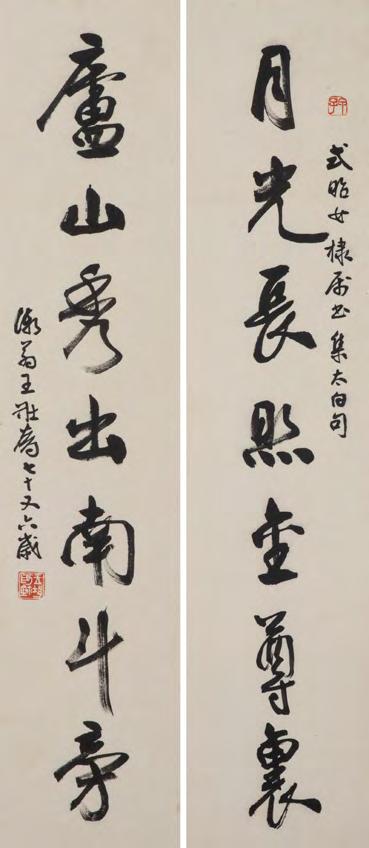 式昭女棣屬書集太白句
月光長照金尊裏
廬山秀出南斗旁
漸翁王壯為七十又六歲